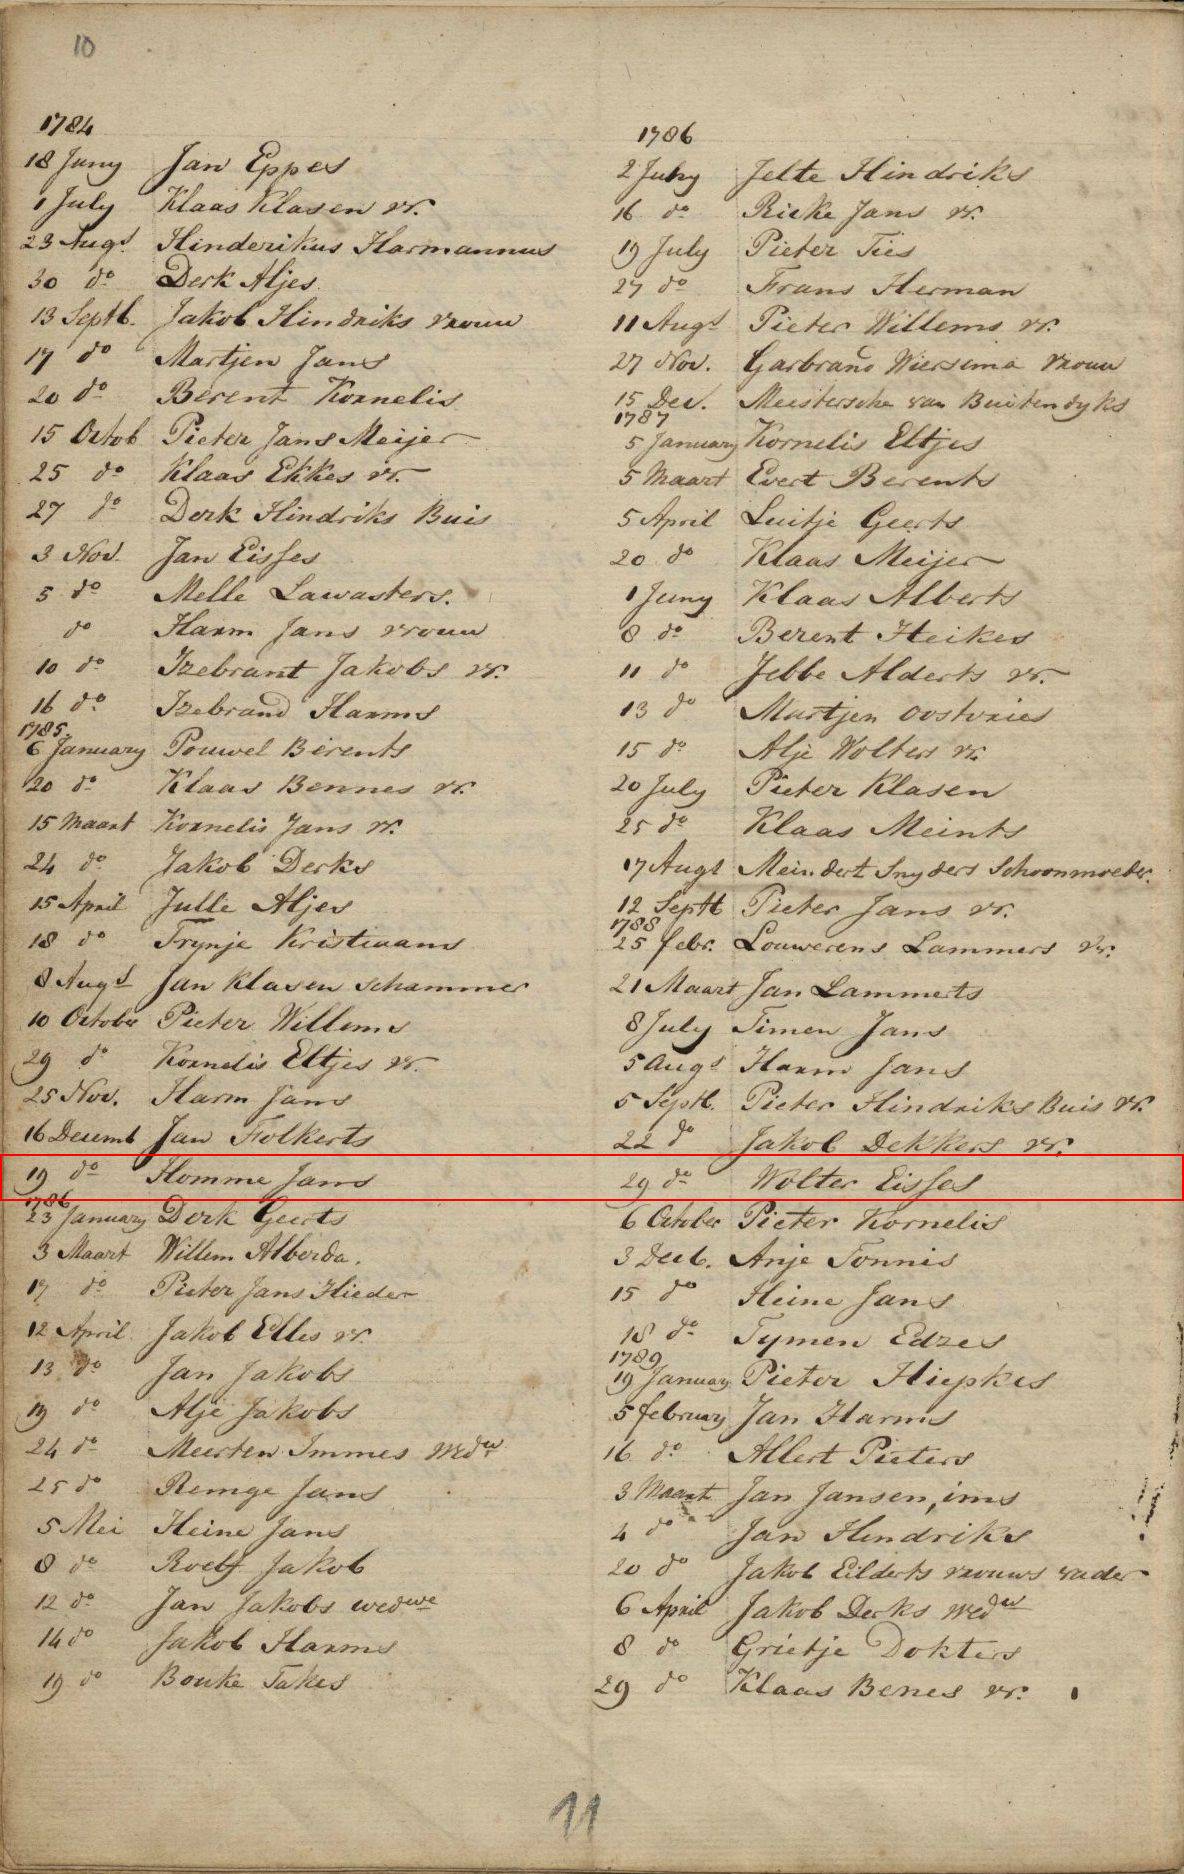 10
1784
18 Juny Jan Eppes
1 July Klaas Klasen vr.
23 Augt Hinderikus Harmannus
30 do Derk Aljes
13 Septb. Jakob Hindriks vrouw
17 do Martjen Jans
20 do Berent Kornelis
15 Octob Pieter Jans Meijer
25 do Klaas Ekkes vr.
27 do Derk Hindriks Buis
3 Nov. Jan Eisses
5 do Melle Lawasters.
do Harm Jans vrouw
10 do Izebrant Jakobs vr.
16 do Izebrand Harms
1785.
6 January Pouwel Berents
20 do Klaas Bennes vr.
15 Maart Kornelis Jans vr.
24 do Jakob Derks
15 April Julle Aljes
18 do Trynje Kristiaans
8 Augt Jan Klasen Schammer
10 October Pieter Willems
29 do Kornelis Eltjes vr.
25 Nov. Harm Jans
16 Decemb Jan Folkerts
19 do Homme Jans
1786
23 January Derk Geerts
3 Maart Willem Alberda.
17 do Pieter Jans Hieder
12 April Jakob Elles vr.
13 do Jan Jakobs
19 do Alje Jakobs
24 do Meerten Immes Wedw
25 do Remge Jans
5 Mei Heine Jans
8 do Roelf Jakob
12 do Jan Jakobs wedwe
14 do Jakob Harms
19 do Bouke Takes
1786
2 Juny Jelte Hindriks
16 do Rieke Jans vr.
19 July Pieter Ties
27 do Frans Herman
11 Augt Pieter Willems vr.
27 Nov. Garbrand Wiersema vrouw
15 Dec. Meistersche van Buitendyks
1787
5 January Kornelis Eltjes
5 Maart Evert Berents
5 April Luitje Geerts
20 do Klaas Meijer
1 Juny Klaas Alberts
8 do Berent Heikes
11 do Jebbe Alderts vr.
13 do Martjen Oostvries
15 do Alje Wolters vr.
20 July Pieter Klasen
25 do Klaas Meints
17 Augt Meindert Snyders Schoonmoeder.
12 Septb Pieter Jans vr.
1788
25 febr. Louwerens Lammers vr.
21 Maart Jan Lammerts
8 July Timen Jans
5 Augs Harm Jans
5 Septb. Pieter Hindriks Buis vr.
22 do Jakob Dekkers vr.
29 do Wolter Eisses
6 October Pieter Kornelis
3 Decb. Anje Tonnis
15 do Heine Jans
18 do Tymen Edzes
1789
19 January Pieter Hiepkes
5 february Jan Harms
16 do Allert Pieters
3 Maart Jan Jansen, ims
4 do Jan Hendriks
20 do Jakob Eilderts vrouws vader
6 April Jakob Derks Wedw
8 do Grietje Dokters
29 do Klaas Benes vr.
11